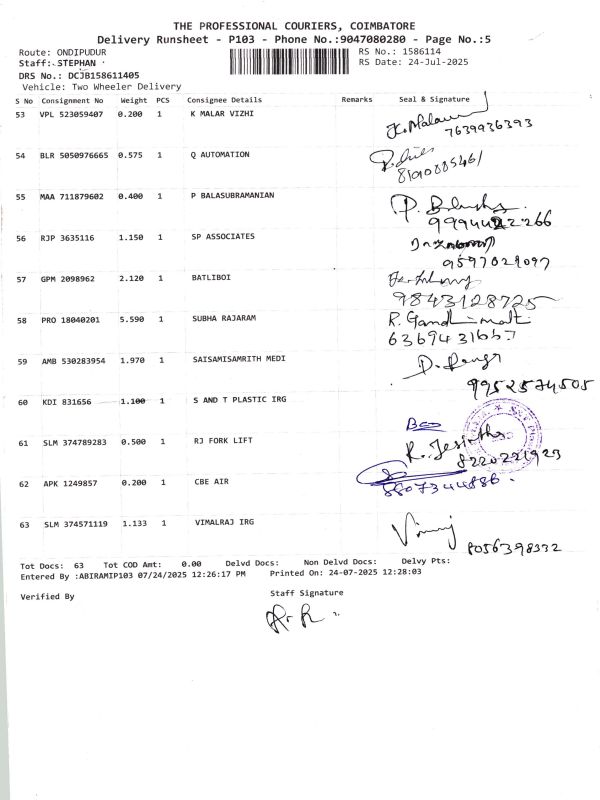 THE PROFESSIONAL COURIERS, COIMBATORE
Delivery Runsheet - P103 - Phone No.:9047080280 - Page No.:5
Route: ONDIPUDUR RS No.: 1586114
Staff: STEPHAN RS Date: 24-Jul-2025
DRS No.: DCJB158611405
Vehicle: Two Wheeler Delivery
S No Consignment No Weight PCS Consignee Details Remarks Seal & Signature
53 VPL 523059407 0.200 1 K MALAR VIZHI K. Malar
7639936393
54 BLR 5050976665 0.575 1 Q AUTOMATION
8190885461
55 MAA 711879602 0.400 1 P BALASUBRAMANIAN
9994422266
56 RJP 3635116 1.150 1 SP ASSOCIATES
9597029097
57 GPM 2098962 2.120 1 BATLIBOI
9843128725
58 PRO 18040201 5.590 1 SUBHA RAJARAM R. Gandhimati
59 AMB 530283954 1.970 1 SAISAMISAMRITH MEDI
9952574505
60 KDI 831656 1.100 1 S AND T PLASTIC IRG
61 SLM 374789283 0.500 1 RJ FORK LIFT
8220221923
62 APK 1249857 0.200 1 CBE AIR
8807344886.
63 SLM 374571119 1.133 1 VIMALRAJ IRG
8056398332
Tot Docs: 63 Tot COD Amt: 0.00 Delvd Docs: Non Delvd Docs: Delvy Pts:
Entered By :ABIRAMIP103 07/24/2025 12:26:17 PM Printed On: 24-07-2025 12:28:03
Verified By Staff Signature